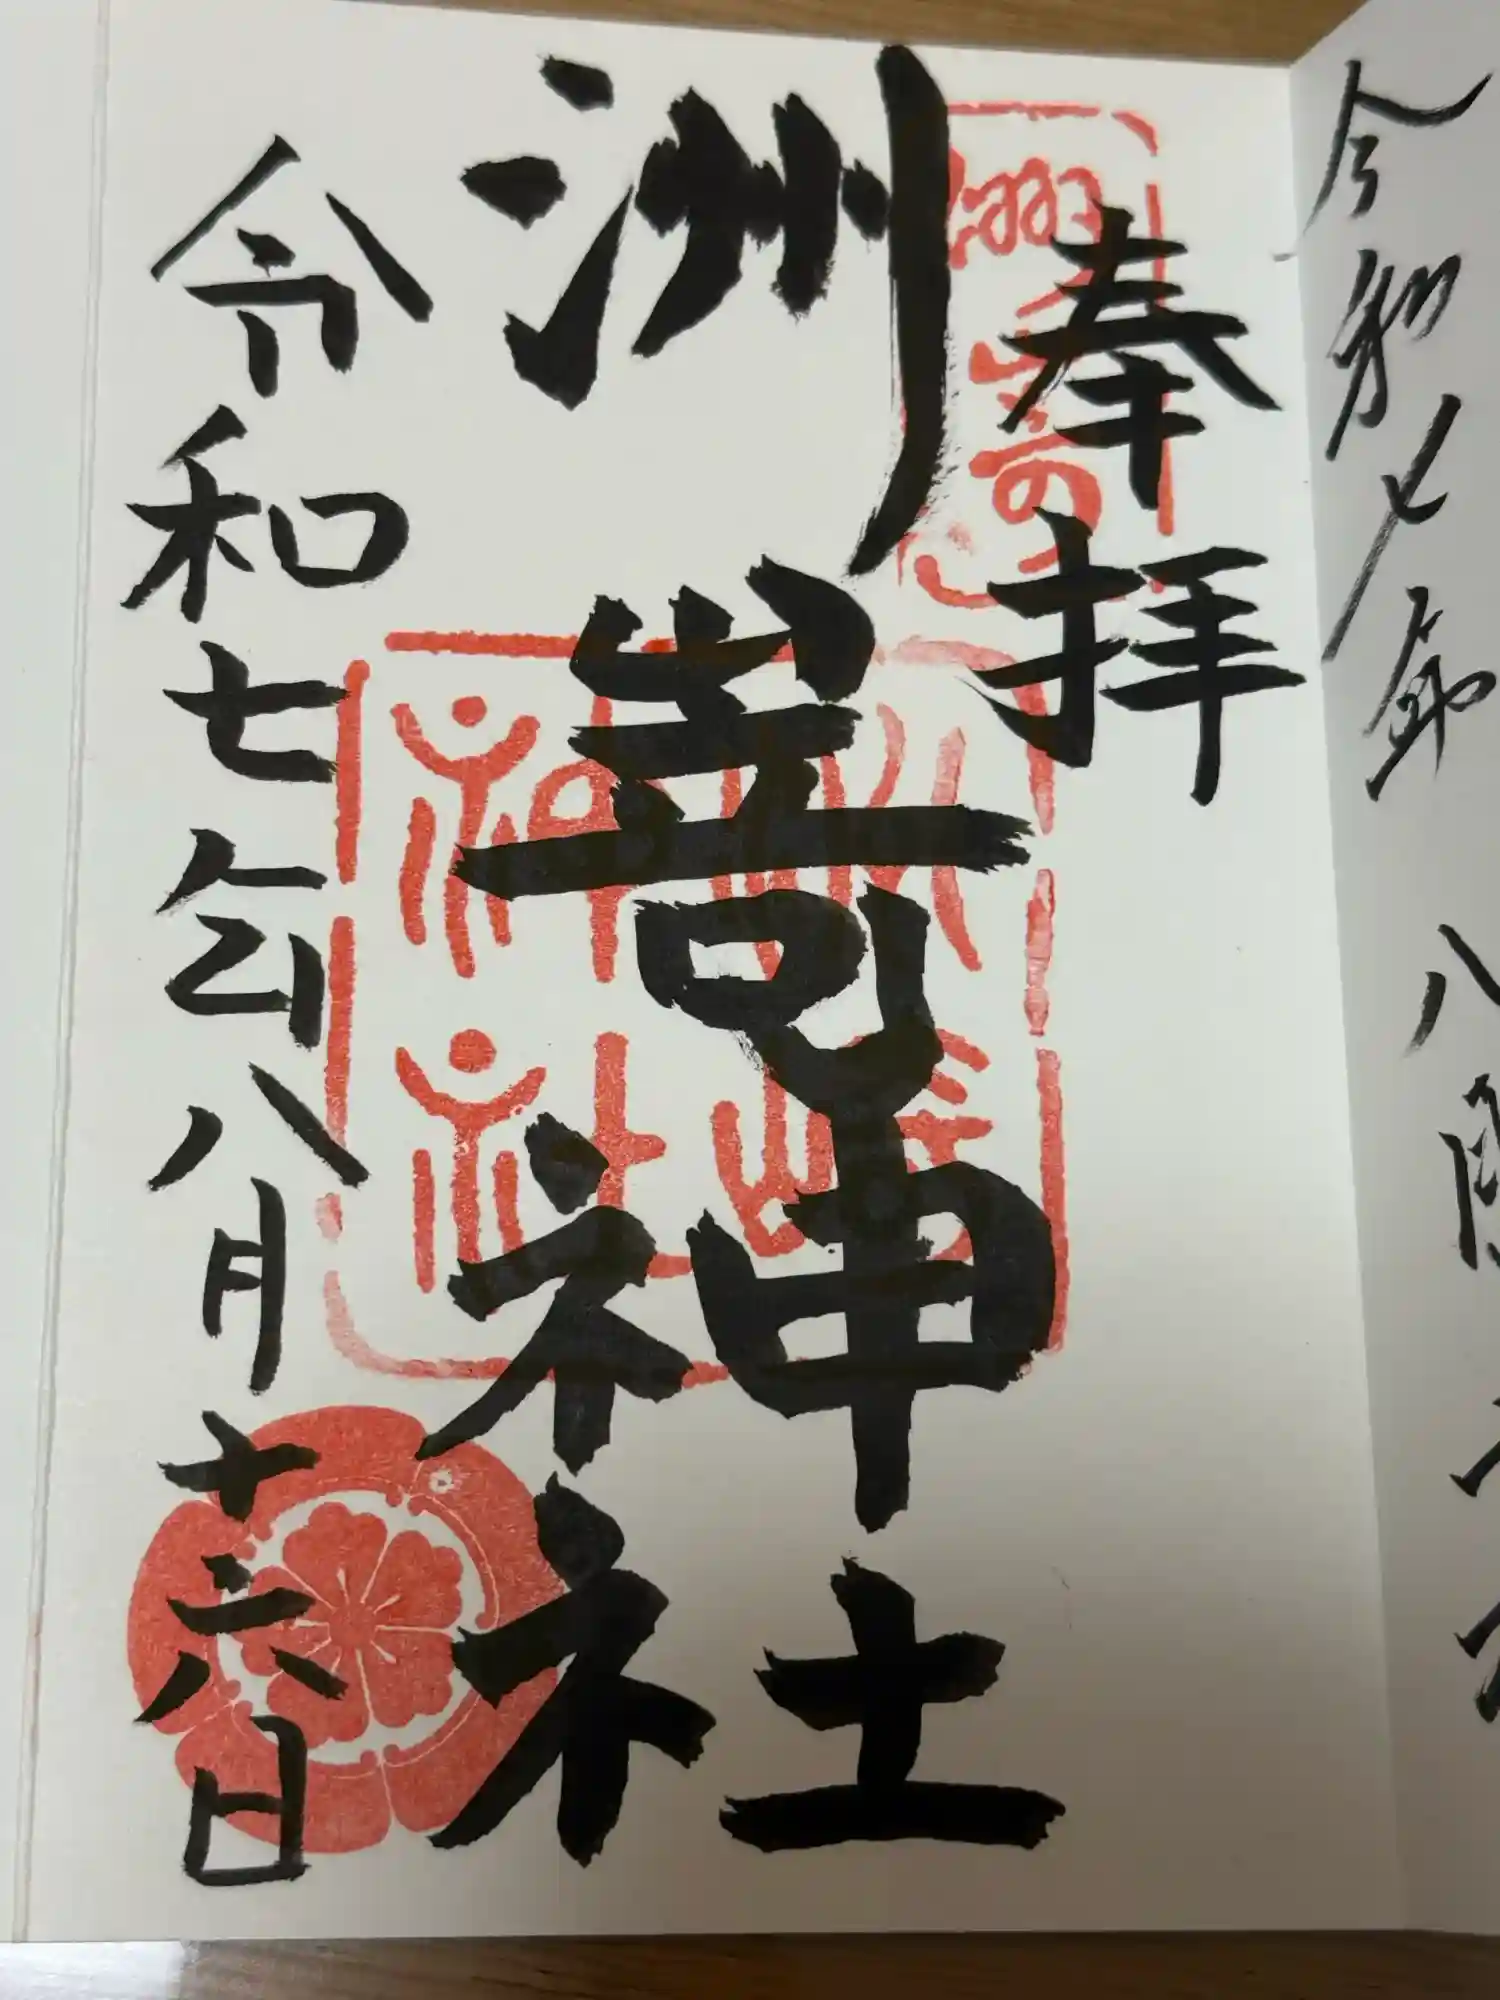 令和七年 八
奉拝
洲嵜神社
令和七年八月十六日
洲崎
神社